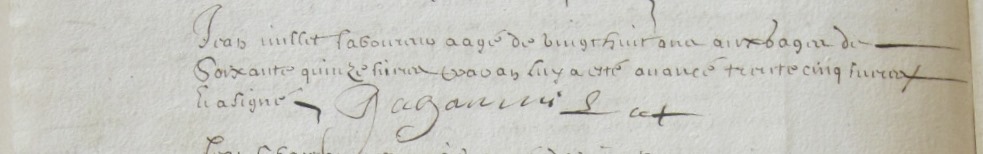 Jean millet laboureur aagé de vingt huit ans aux gages de
Soixante quinze livres luy a esté avancé trente cinq livres
a signé